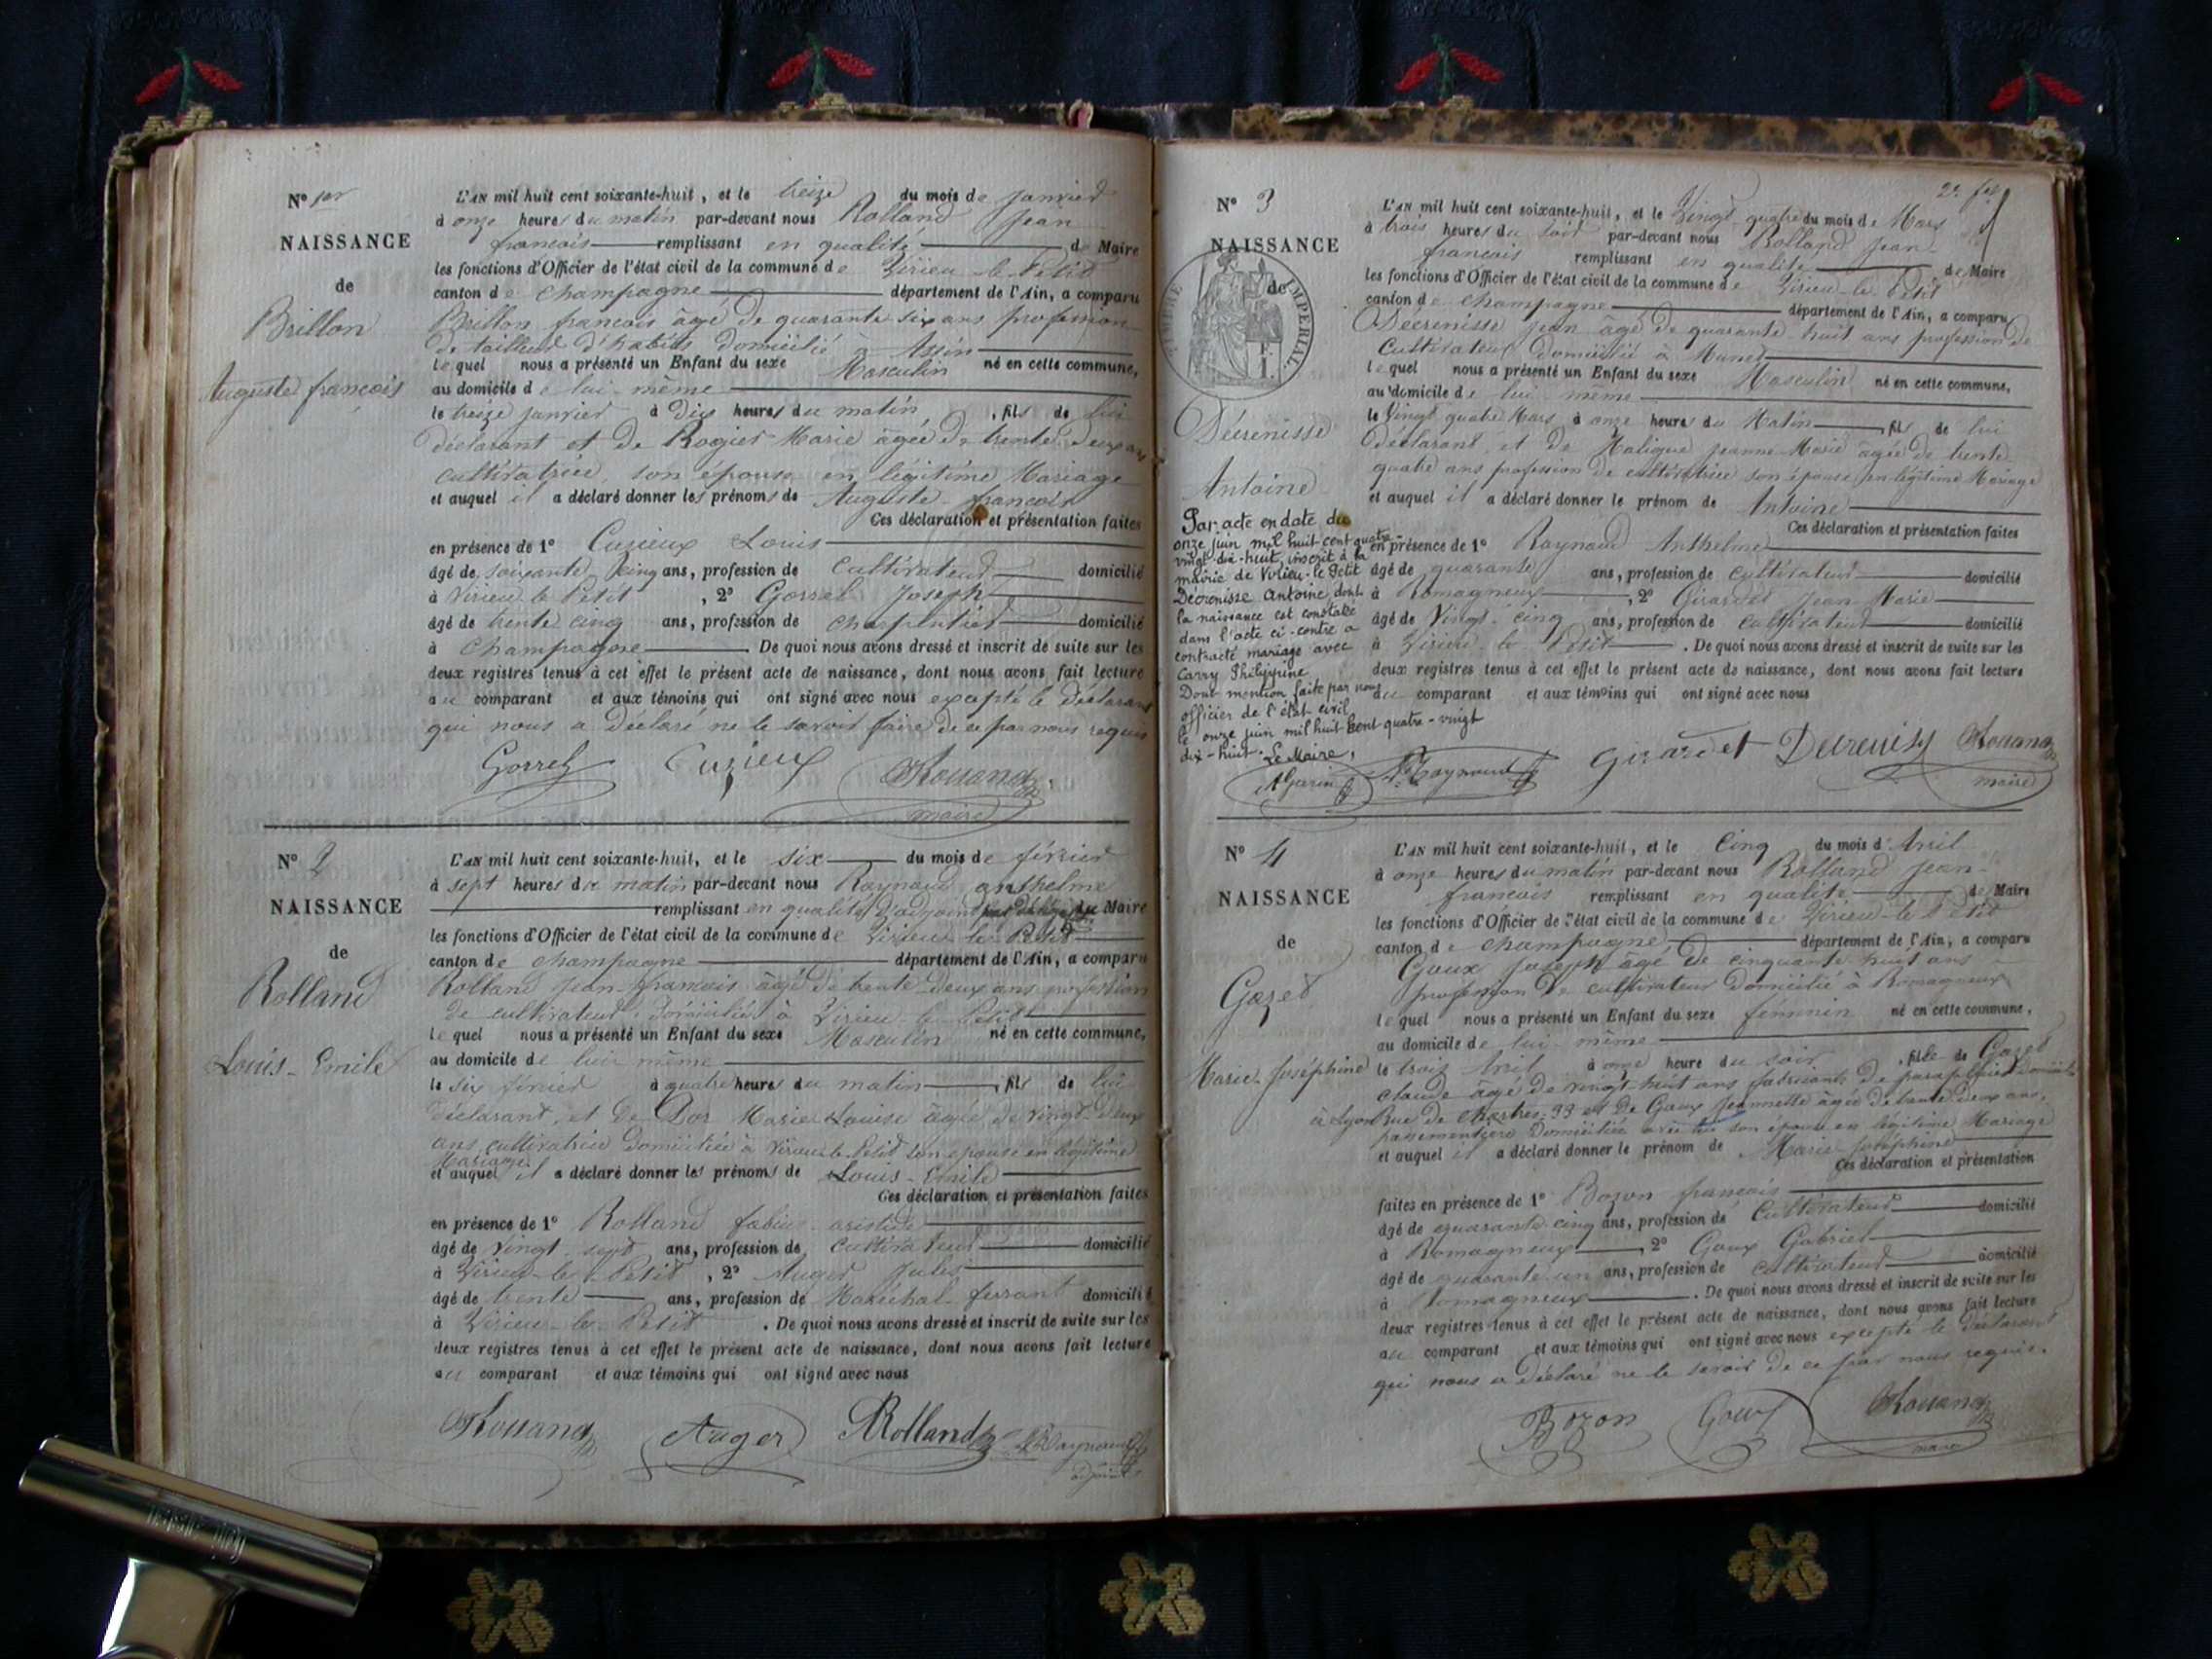 N° 1er
NAISSANCE
de
Brillon
Auguste françois
L'AN mil huit cent soixante-huit, et le treize du mois de janvier
à onze heures du matin par-devant nous Rolland Jean
francois remplissant en qualité de Maire
les fonctions d'Officier de l'état civil de la commune de Virieu le Petit
canton de Champagne département de l'Ain, a comparu
Brillon francois âgé de quarante six ans profession
de tailleur d'habits domicilié à Assin
lequel nous a présenté un Enfant du sexe Masculin né en cette commune,
au domicile de lui même
le treize janvier à Dix heures du matin, fils de lui
déclarant et de Rogier Marie âgée de trente deux ans
cultivatrice, son epouse en légitime Mariage
et auquel il a déclaré donner les prénoms de Auguste francois
Ces déclaration et présentation faites
en présence de 1° Cuzieux Louis
âgé de soixante cinq ans, profession de Cultivateur domicilié
à Virieu le Petit, 2° Gorrel Joseph
âgé de trente cinq ans, profession de charpentier domicilié
à Champagne. De quoi nous avons dressé et inscrit de suite sur les
deux registres tenus à cet effet le présent acte de naissance, dont nous avons fait lecture
au comparant et aux témoins qui ont signé avec nous excepté le déclarant
qui nous a déclaré ne le savoir faire de ce par nous requis
Gorrel Cuzieux Rolland
maire
N° 2
NAISSANCE
de
Rolland
Louis-Emile
L'AN mil huit cent soixante-huit, et le six du mois de février
à sept heures du matin par-devant nous Raynaud anthelme
remplissant en qualité d'adjoint du Maire
les fonctions d'Officier de l'état civil de la commune de Virieu le Petit
canton de champagne département de l'Ain, a comparu
Rolland Jean-francois âgé de trente deux ans profession
de cultivateur domicilié à Virieu-le-Petit
lequel nous a présenté un Enfant du sexe Masculin né en cette commune,
au domicile de lui même
le six février à quatre heures du matin, fils de lui
déclarant, et de Dor Marie Louise âgée de vingt-deux
ans cultivatrice domiciliée à Virieu-le-Petit son epouse en légitime
Mariage
et auquel il a déclaré donner les prénoms de Louis-Emile
Ces déclaration et présentation faites
en présence de 1° Rolland fabius aristide
âgé de Vingt-sept ans, profession de cultivateur domicilié
à Virieu-le-Petit, 2° Auger Jules
âgé de trente ans, profession de Maréchal-ferrant domicilié
à Virieu-le-Petit. De quoi nous avons dressé et inscrit de suite sur les
deux registres tenus à cet effet le présent acte de naissance, dont nous avons fait lecture
au comparant et aux témoins qui ont signé avec nous
Rolland Auger Rolland Raynaud
adjoint
2e fet
N° 3
NAISSANCE
de
TIMBRE IMPERIAL
1 F.
Décrenisse
Antoine
Par acte en date du
onze juin mil huit cent quatre-
vingt-dix-huit, inscrit à la
mairie de Virieu-le-Petit
Décrenisse Antoine, dont
la naissance est constatée
dans l'acte ci-contre a
contracté mariage avec
Carry Philippine
Dont mention faite par nous
officier de l'état civil
le onze juin mil huit cent quatre-vingt
dix-huit. Le Maire,
L'AN mil huit cent soixante-huit, et le Vingt-quatre du mois de Mars
à trois heures du soir par-devant nous Rolland Jean
francois remplissant en qualité de Maire
les fonctions d'Officier de l'état civil de la commune de Virieu-le-Petit
canton de Champagne département de l'Ain, a comparu
Décrenisse Jean âgé de quarante-huit ans profession de
Cultivateur domicilié à Munet
lequel nous a présenté un Enfant du sexe Masculin né en cette commune,
au domicile de lui même
le Vingt quatre Mars à onze heures du Matin, fils de lui
déclarant, et de Jeanne-Marie âgée de trente
quatre ans profession de cultivatrice son épouse en légitime Mariage
et auquel il a déclaré donner le prénom de Antoine
Ces déclaration et présentation faites
en présence de 1° Raynaud Anthelme
âgé de quarante ans, profession de cultivateur domicilié
à Romagneux, 2° Girardet Jean-Marie
âgé de Vingt-cinq ans, profession de cultivateur domicilié
à Virieu-le-Petit. De quoi nous avons dressé et inscrit de suite sur les
deux registres tenus à cet effet le présent acte de naissance, dont nous avons fait lecture
au comparant et aux témoins qui ont signé avec nous
Garin Raynaud Girardet Decrenisse Rolland
maire
N° 4
NAISSANCE
de
Gazet
Marie-Joséphine
L'AN mil huit cent soixante-huit, et le Cinq du mois d'Avril
à onze heures du matin par-devant nous Rolland Jean-
francois remplissant en qualité de Maire
les fonctions d'Officier de l'état civil de la commune de Virieu-le-Petit
canton de champagne département de l'Ain, a comparu
Goux Joseph âgé de cinquante-huit ans
profession de cultivateur domicilié à Romagneux
lequel nous a présenté un Enfant du sexe féminin né en cette commune,
au domicile de lui-même
le trois Avril à onze heure du soir, fille de Gazet
claude âgé de vingt-huit ans fabricant de parapluies domicilié
à Lyon Rue de Chartres 33 et de Goux Jeannette âgée de trente deux ans,
passementière domiciliée avec lui son épouse en légitime Mariage
et auquel il a déclaré donner le prénom de Marie Joséphine
Ces déclaration et présentation
faites en présence de 1° Bozon francois
âgé de quarante-cinq ans, profession de Cultivateur domicilié
à Romagneux, 2° Goux Gabriel
âgé de quarante-un ans, profession de cultivateur domicilié
à Romagneux. De quoi nous avons dressé et inscrit de suite sur les
deux registres tenus à cet effet le présent acte de naissance, dont nous avons fait lecture
au comparant et aux témoins qui ont signé avec nous excepté le déclarant
qui nous a déclaré ne le savoir de ce par nous requis.
Bozon Goux Rolland
maire